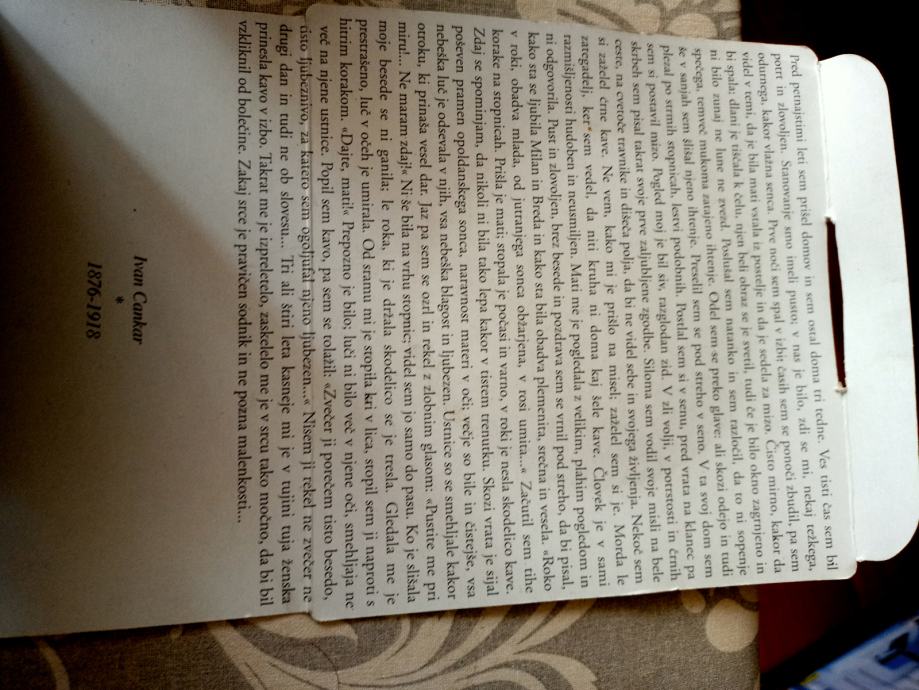 Pred petnajstimi leti sem prišel domov in sem ostal doma tri tedne. Ves tisti čas sem bil
potrt in zlovoljen. Stanovanje smo imeli pusto; v nas je bilo, zdi se mi, nekaj težkega,
odurnega, kakor vlažna senca. Prve noči sem spal v izbi; časih sem se ponoči zbudil, pa sem
videl v temi, da je bila mati vstala iz postelje in da je sedela za mizo. Čisto mirno, kakor da
bi spala; dlani je tiščala k čelu, njen beli obraz se je svetil, tudi če je bilo okno zagrnjeno in
ni bilo zunaj ne lune ne zvezd. Poslušal sem natanko in sem razločil, da to ni sopenje
spečega, temveč mukoma zatajeno ihtenje. Odel sem se preko glave; ali skozi odejo in tudi
še v sanjah sem slišal njeno ihtenje. Preselil sem se pod streho v seno. V ta svoj dom sem
plezal po strmih stopnicah, lestvi podobnih. Postlal sem si v senu, pred vrata na klanec pa
sem si postavil mizo. Pogled moj je bil siv, razglodan zid. V zli volji, v potrtosti in črnih
skrbeh sem pisal takrat svoje prve zaljubljene zgodbe. Siloma sem vodil svoje misli na bele
ceste, na cvetoče travnike in dišeča polja, da bi ne videl sebe in svojega življenja. Nekoč sem
si zaželel črne kave. Ne vem, kako mi je prišlo na misel; zaželel sem si je. Morda le
zategadelj, ker sem vedel, da niti kruha ni doma kaj šele kave. Človek je v sami
razmišljenosti hudoben in neusmiljen. Mati me je pogledala z velikim, plahim pogledom in
ni odgovorila. Pust in zlovoljen, brez besede in pozdrava sem se vrnil pod streho, da bi pisal,
kako sta se ljubila Milan in Breda in kako sta bila obadva plemenita, srečna in vesela. «Roko
v roki, obadva mlada, od jutranjega sonca obžarjena, v rosi umita...« Začutil sem tihe
korake na stopnicah. Prišla je mati; stopala je počasi in varno, v roki je nesla skodelico kave.
Zdaj se spominjam, da nikoli ni bila tako lepa kakor v tistem trenutku. Skozi vrata je sijal
poševen pramen opoldanskega sonca, naravnost materi v oči; večje so bile in čistejše, vsa
nebeška luč je odsevala v njih, vsa nebeška blagost in ljubezen. Ustnice so se smehljale kakor
otroku, ki prinaša vesel dar. Jaz pa sem se ozrl in rekel z zlobnim glasom: «Pustite me pri
miru!... Ne maram zdaj!« Ni še bila na vrhu stopnic; videl sem jo samo do pasu. Ko je slišala
moje besede se ni ganila; le roka, ki je držala skodelico se je tresla. Gledala me je
prestrašeno, luč v očeh je umirala. Od sramu mi je stopila kri v lica, stopil sem ji naproti s
hitrim korakom. «Dajte, mati!« Prepozno je bilo; luči ni bilo več v njene oči, smehljaja ne
več na njene ustnice. Popil sem kavo, pa sem se tolažil: «Zvečer ji porečem tisto besedo,
tisto ljubeznivo, za katero sem ogoljufal njeno ljubezen...« Nisem ji rekel ne zvečer ne
drugi dan in tudi ne ob slovesu... Tri ali štiri leta kasneje mi je v tujini tuja ženska
prinesla kavo v izbo. Takrat me je izpreletelo, zaskelelo me je v srcu tako močno, da bi bil
vzkliknil od bolečine. Zakaj srce je pravičen sodnik in ne pozna malenkosti...
Ivan Cankar
*
1876-1918